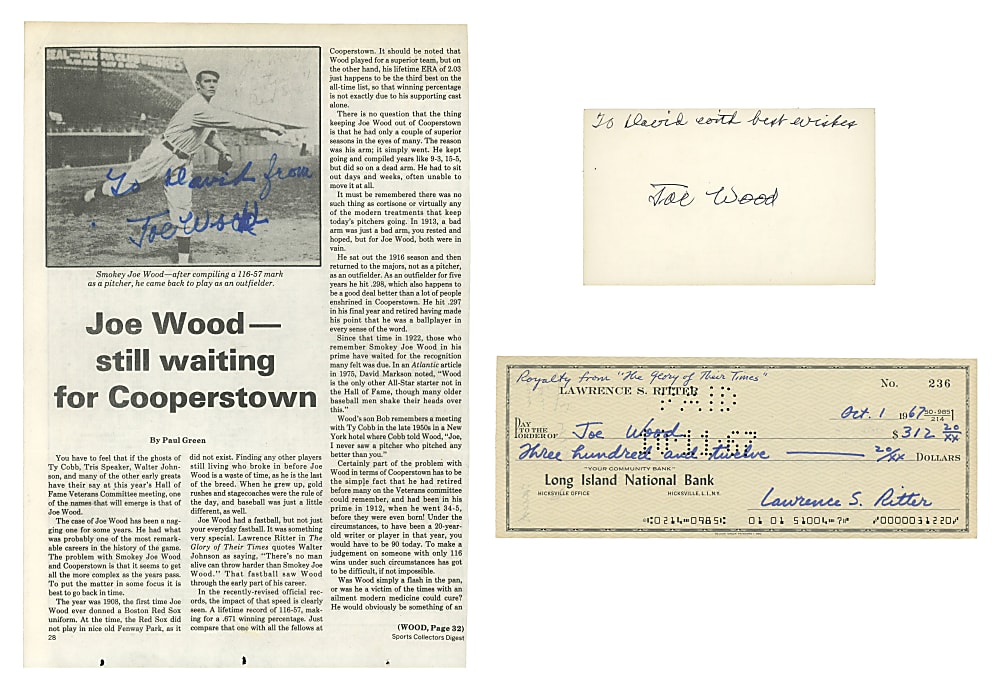 To David from
Joe Wood
Smokey Joe Wood—after compiling a 116-57 mark
as a pitcher, he came back to play as an outfielder.
Joe Wood—
still waiting
for Cooperstown
By Paul Green
You have to feel that if the ghosts of
Ty Cobb, Tris Speaker, Walter John-
son, and many of the other early greats
have their say at this year's Hall of
Fame Veterans Committee meeting, one
of the names that will emerge is that of
Joe Wood.
The case of Joe Wood has been a nag-
ging one for some years. He had what
was probably one of the most remark-
able careers in the history of the game.
The problem with Smokey Joe Wood
and Cooperstown is that it seems to get
all the more complex as the years pass.
To put the matter in some focus it is
best to go back in time.
The year was 1908, the first time Joe
Wood ever donned a Boston Red Sox
uniform. At the time, the Red Sox did
not play in nice old Fenway Park, as it
28
did not exist. Finding any other players
still living who broke in before Joe
Wood is a waste of time, as he is the last
of the breed. When he grew up, gold
rushes and stagecoaches were the rule of
the day, and baseball was just a little
different, as well.
Joe Wood had a fastball, but not just
your everyday fastball. It was something
very special. Lawrence Ritter in The
Glory of Their Times quotes Walter
Johnson as saying, "There's no man
alive can throw harder than Smokey Joe
Wood." That fastball saw Wood
through the early part of his career.
In the recently-revised official rec-
ords, the impact of that speed is clearly
seen. A lifetime record of 116-57, mak-
ing for a .671 winning percentage. Just
compare that one with all the fellows at
Cooperstown. It should be noted that
Wood played for a superior team, but on
the other hand, his lifetime ERA of 2.03
just happens to be the third best on the
all-time list, so that winning percentage
is not exactly due to his supporting cast
alone.
There is no question that the thing
keeping Joe Wood out of Cooperstown
is that he had only a couple of superior
seasons in the eyes of many. The reason
was his arm; it simply went. He kept
going and compiled years like 9-3, 15-5,
but did so on a dead arm. He had to sit
out days and weeks, often unable to
move it at all.
It must be remembered there was no
such thing as cortisone or virtually any
of the modern treatments that keep
today's pitchers going. In 1913, a bad
arm was just a bad arm, you rested and
hoped, but for Joe Wood, both were in
vain.
He sat out the 1916 season and then
returned to the majors, not as a pitcher,
as an outfielder. As an outfielder for five
years he hit .298, which also happens to
be a good deal better than a lot of people
enshrined in Cooperstown. He hit .297
in his final year and retired having made
his point that he was a ballplayer in
every sense of the word.
Since that time in 1922, those who
remember Smokey Joe Wood in his
prime have waited for the recognition
many felt was due. In an Atlantic article
in 1975, David Markson noted, "Wood
is the only other All-Star starter not in
the Hall of Fame, though many older
baseball men shake their heads over
this."
Wood's son Bob remembers a meeting
with Ty Cobb in the late 1950s in a New
York hotel where Cobb told Wood, "Joe,
I never saw a pitcher who pitched any
better than you."
Certainly part of the problem with
Wood in terms of Cooperstown has to be
the simple fact that he had retired
before many on the Veterans committee
could remember, and had been in his
prime in 1912, when he went 34-5,
before they were even born! Under the
circumstances, to have been a 20-year-
old writer or player in that year, you
would have to be 90 today. To make a
judgement on someone with only 116
wins under such circumstances has got
to be difficult, if not impossible.
Was Wood simply a flash in the pan,
or was he a victim of the times with an
ailment modern medicine could cure?
He would obviously be something of an
(WOOD, Page 32)
Sports Collectors Digest
To David with best wishes
Joe Wood
Royalty from "The Glory of Their Times"
LAWRENCE S. RITTER
No. 236
PAID
Oct. 1 1967 50-985/214
PAY TO THE ORDER OF Joe Wood $312 20/XX
Three hundred and twelve 20/XX DOLLARS
"YOUR COMMUNITY BANK"
Long Island National Bank
HICKSVILLE OFFICE HICKSVILLE, L.I., N.Y.
Lawrence S. Ritter
0214 0985 01 01 51004 7 0000031220